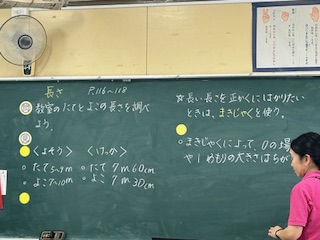 長さ P.116〜118
教室のたてとよこの長さを調べ
よう。
<よそう> <けっか>
○ たて5〜7m ○ たて 7m60cm
○ よこ7〜10m ○ よこ 7m30cm
☆長い長さを正かくにはかりたい
ときは、まきじゃくを使う。
○まきじゃくによって、0の場
や1めもりの大きさはちが